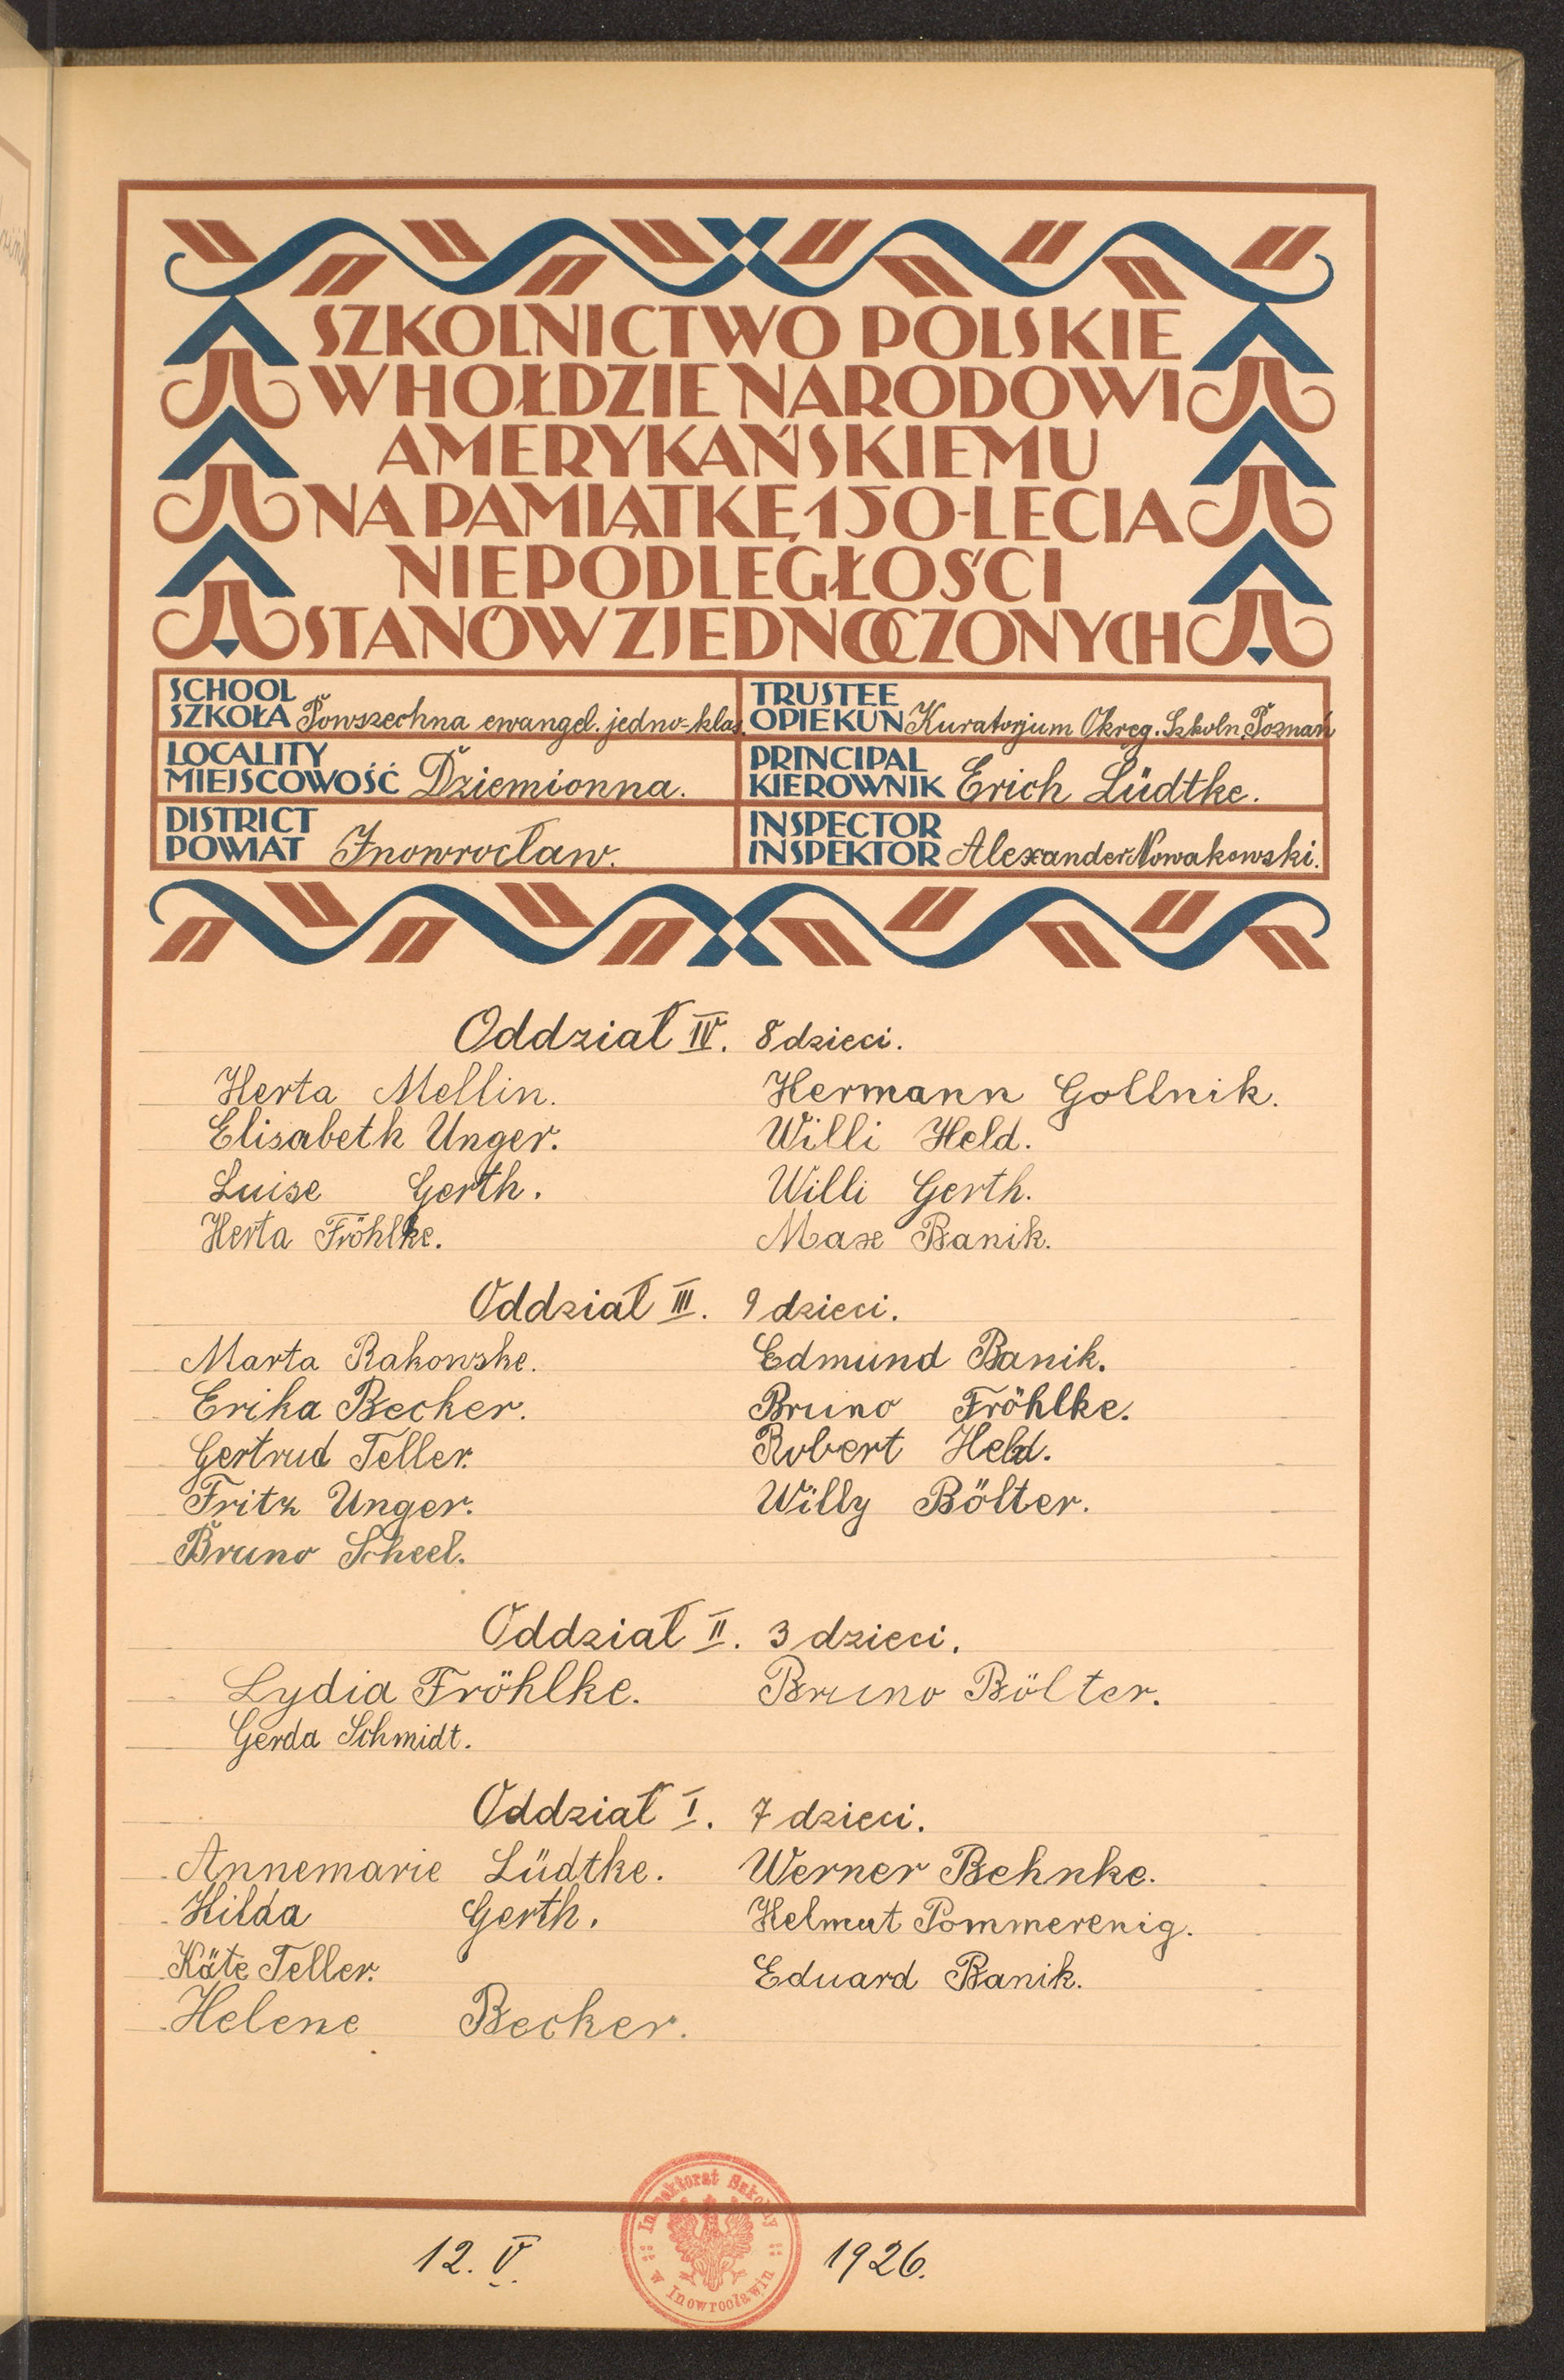 SZKOLNICTWO POLSKIE
W HOŁDZIE NARODOWI
AMERYKAŃSKIEMU
NA PAMIĄTKĘ 150-LECIA
NIEPODLEGŁOŚCI
STANÓW ZJEDNOCZONYCH
SCHOOL
SZKOŁA Powszechna ewangel. jedno-klas.
TRUSTEE
OPIEKUN Kuratorjum Okręg. Szkoln. Poznań
LOCALITY
MIEJSCOWOŚĆ Dziemionna.
PRINCIPAL
KIEROWNIK Erich Lüdtke.
DISTRICT
POWIAT Inowrocław.
INSPECTOR
INSPEKTOR Alexander Nowakowski.
Oddział IV. 8 dzieci.
Herta Mellin. Hermann Gollnik.
Elisabeth Unger. Willi Held.
Luise Gerth. Willi Gerth.
Herta Fröhlke. Max Banik.
Oddział III. 9 dzieci.
Marta Rakowske. Edmund Banik.
Erika Becker. Bruno Fröhlke.
Gertrud Teller. Robert Held.
Fritz Unger. Willy Bölter.
Bruno Scheel.
Oddział II. 3 dzieci.
Lydia Fröhlke. Bruno Bölter.
Gerda Schmidt.
Oddział I. 7 dzieci.
Annemarie Lüdtke. Werner Behnke.
Hilda Gerth. Helmut Pommerenig.
Käte Teller. Eduard Banik.
Helene Becker.
Inspektorat Szkolny
w Inowrocławiu
12. V. 1926.